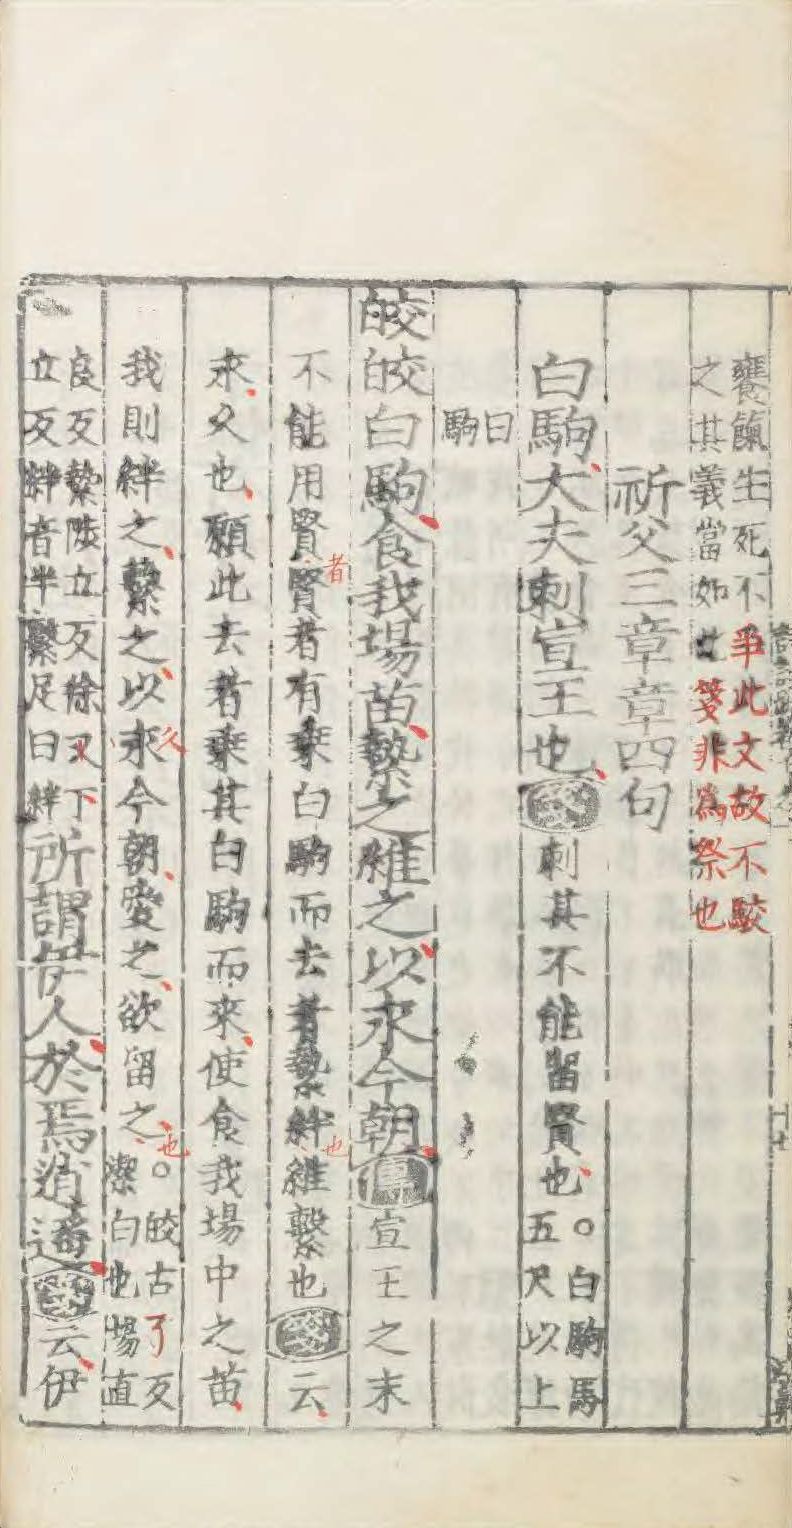 饔餼生死不爭此文故不駮
之其義當如此箋非爲祭也
祈父三章章四句
白駒大夫刺宣王也箋刺其不能留賢也○白駒馬
五尺以上
曰
駒
皎皎白駒食我場苗縶之維之以永今朝傳宣王之末
不能用賢賢者有乗白駒而去者縶絆維繫也箋云
者
也
永久也願此去者乗其白駒而來使食我場中之苗
我則絆之繫之以永今朝愛之欲留之○皎古了反
久
也
潔白也場直
良反縶陟立反徐又下
立反絆音半繫足曰絆所謂伊人於焉逍遥箋云伊